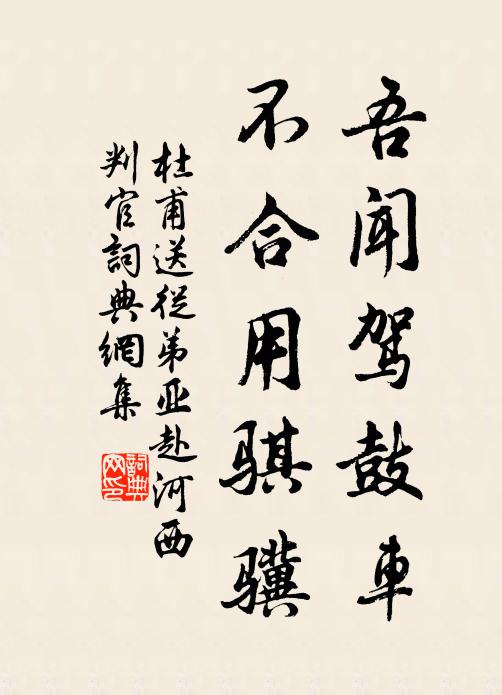 吾闻驾鼓車
不合用骐骥
杜甫送從弟亚赴河西
判官詞典網集
詞典
网印